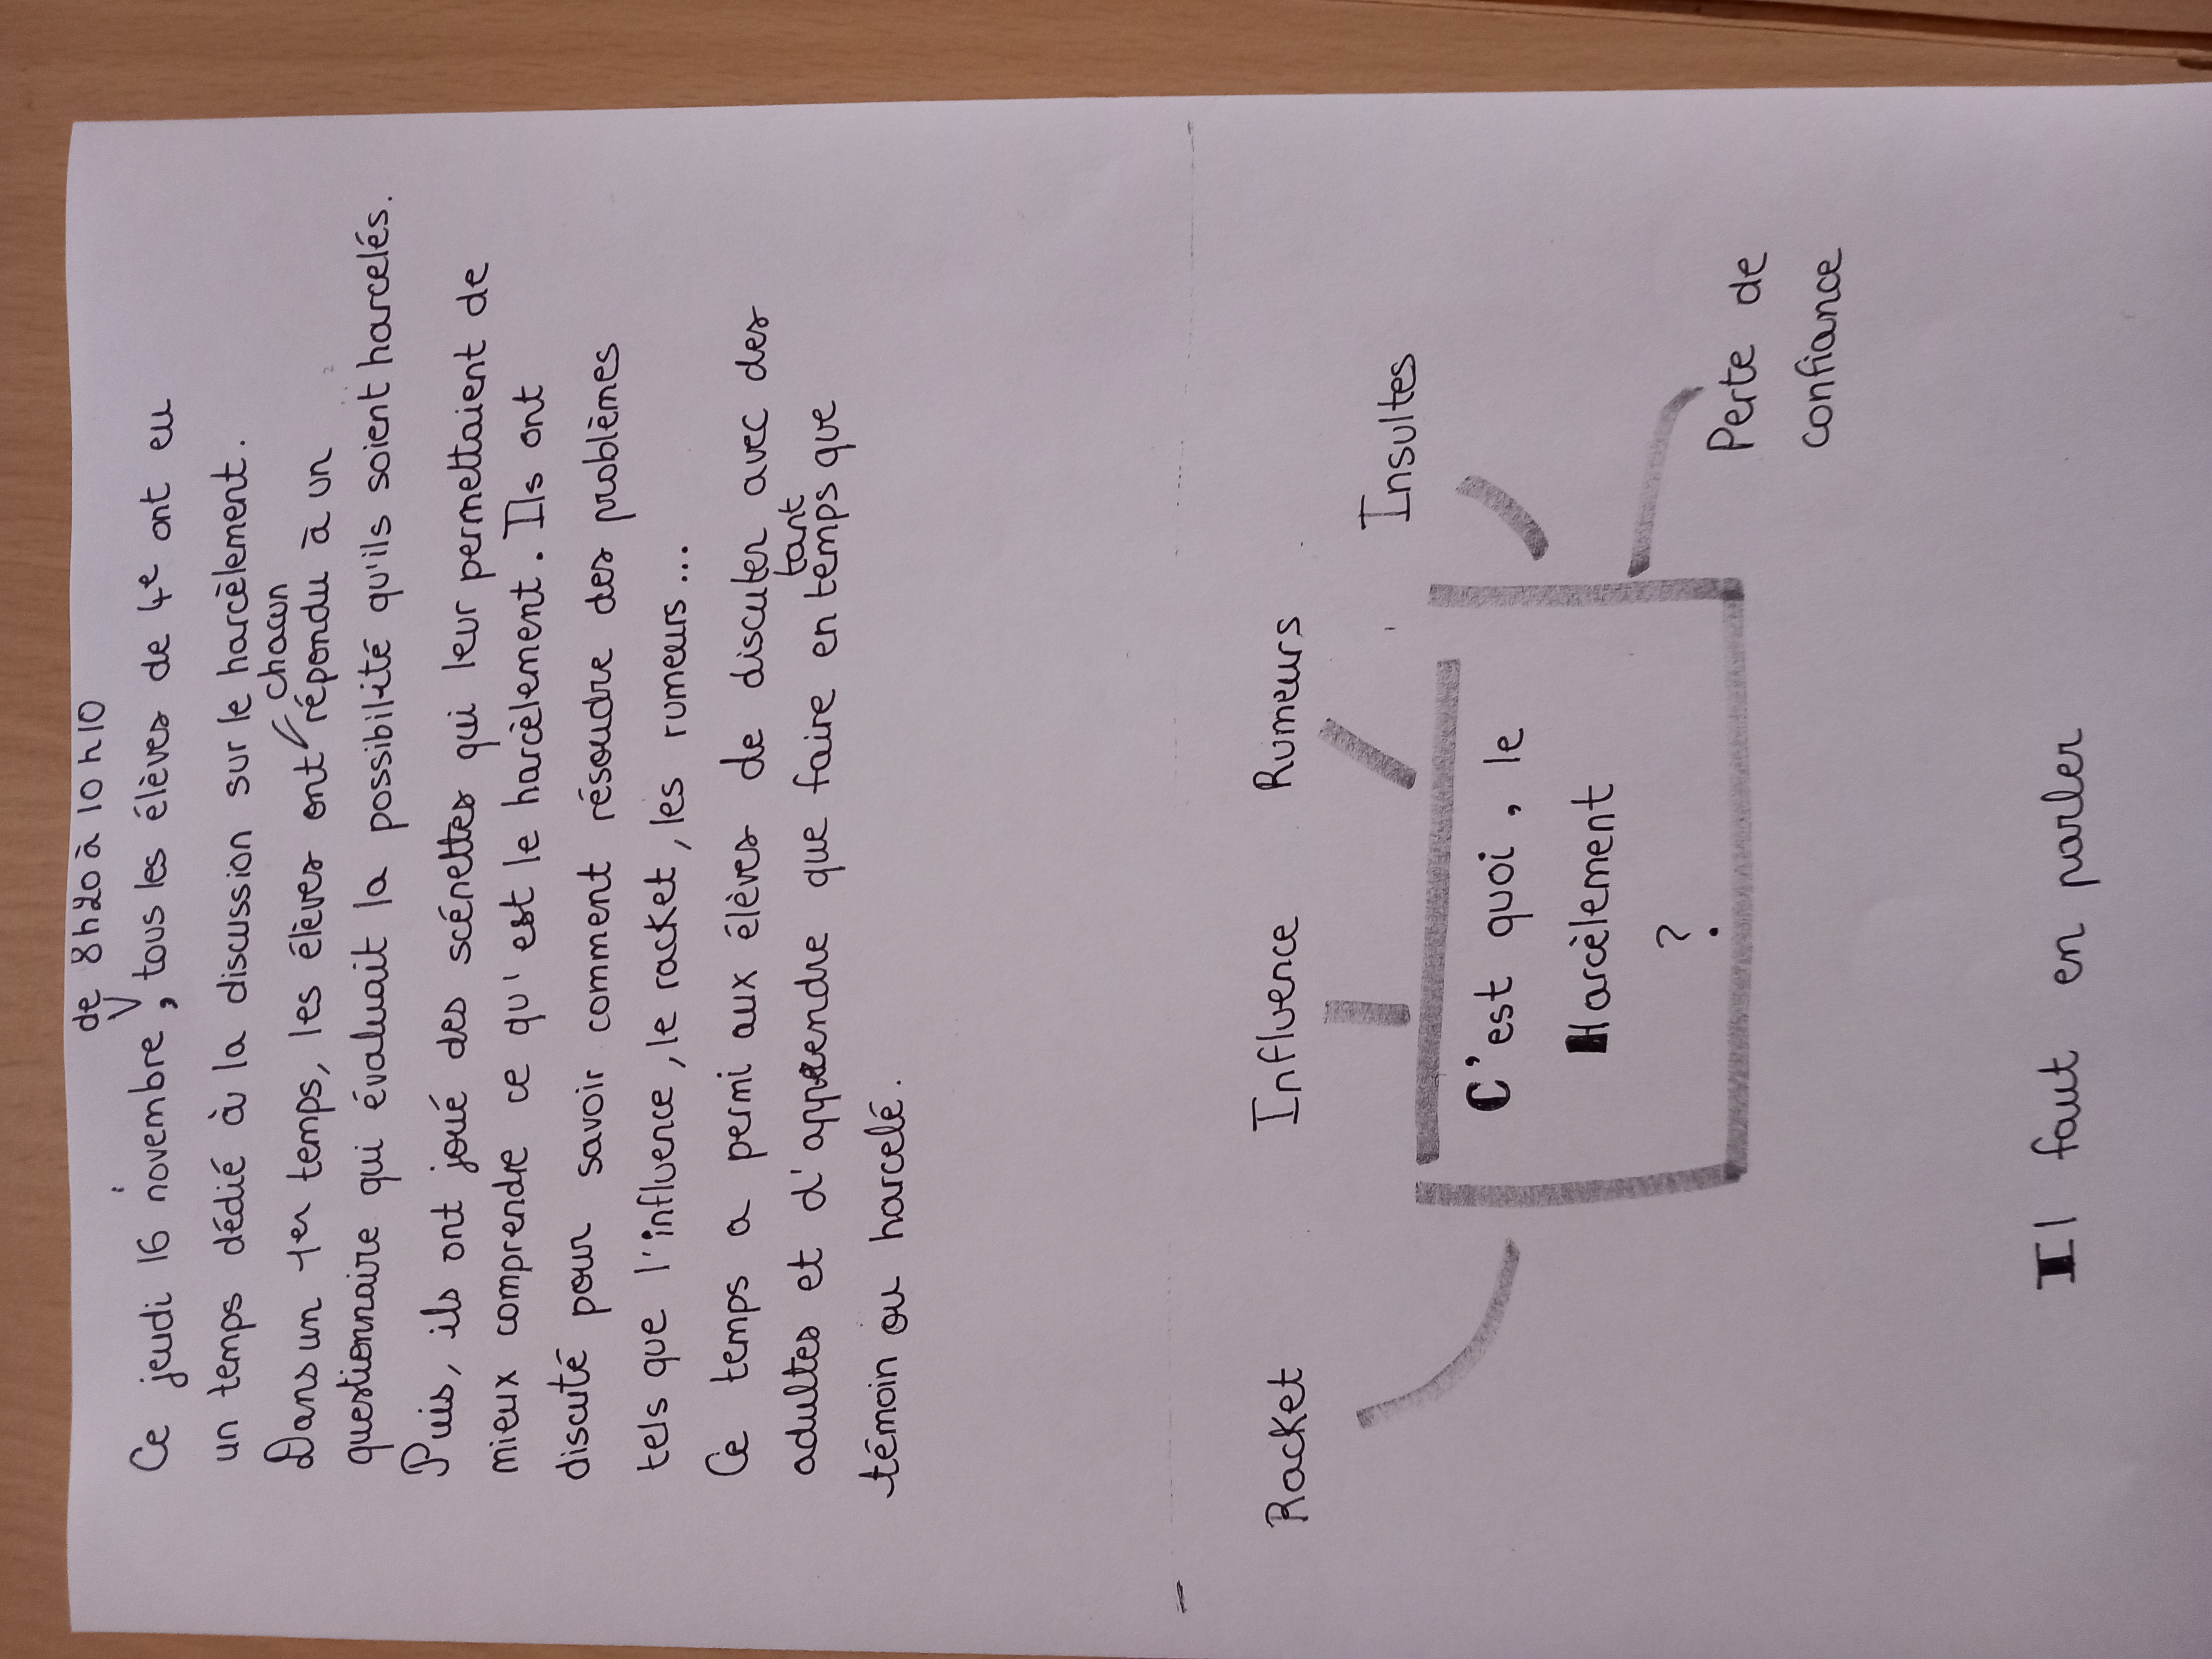 de 8h20 à 10h10
Ce jeudi 16 novembre, tous les élèves de 4e ont eu
un temps dédié à la discussion sur le harcèlement.
chacun
Dans un 1er temps, les élèves ont répondu à un
questionnaire qui évaluait la possibilité qu'ils soient harcelés.
Puis, ils ont joué des scénettes qui leur permettaient de
mieux comprendre ce qu'est le harcèlement. Ils ont
discuté pour savoir comment résoudre des problèmes
tels que l'influence, le racket, les rumeurs...
Ce temps a permi aux élèves de discuter avec des
tant
adultes et d'apprendre que faire en temps que
témoin ou harcelé.
Racket Influence Rumeurs
Insultes
C'est quoi, le
Harcèlement
?
Perte de
confiance
Il faut en parler